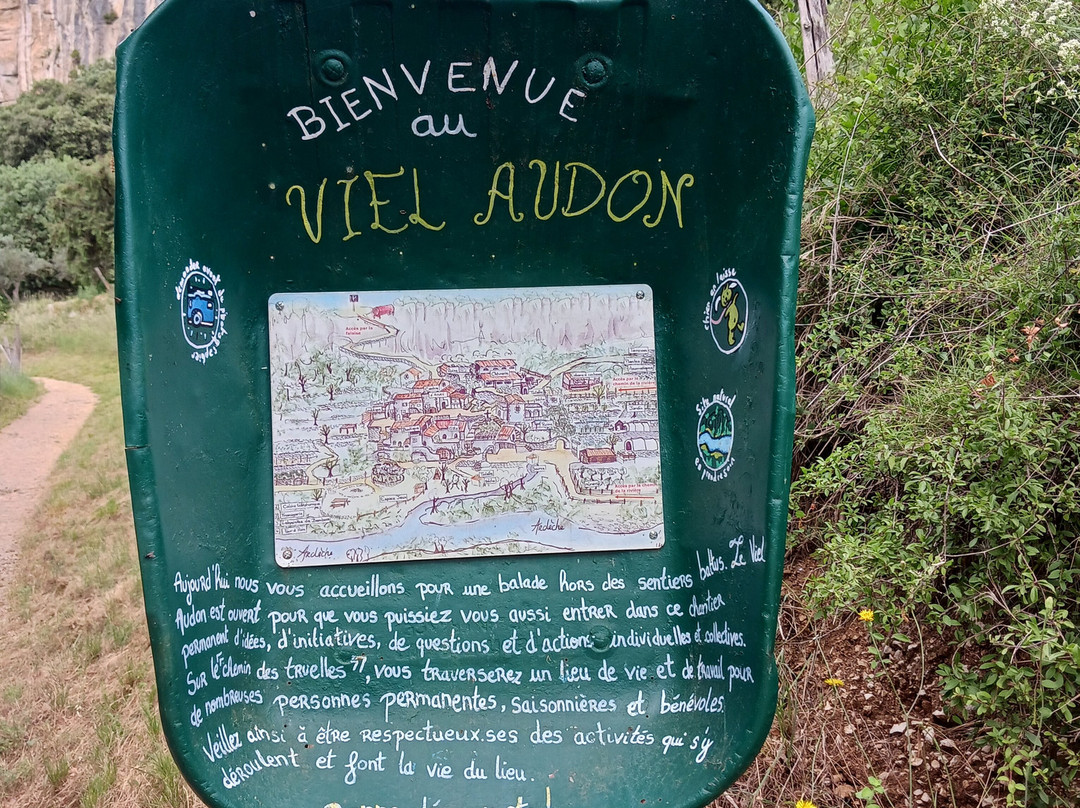 BIENVENUE
au
VIEL AUDON
demander avant de photographier
chien en laisse
Site naturel
Accès par la
falaise
Ardèche
Ardèche
Aujourd'hui nous vous accueillons pour une balade hors des sentiers battus. Le Viel
Audon est ouvert pour que vous puissiez vous aussi entrer dans ce chantier
permanent d'idées, d'initiatives, de questions et d'actions individuelles et collectives.
Sur le "chemin des truelles", vous traverserez un lieu de vie et de travail pour
de nombreuses personnes permanentes, saisonnières et bénévoles.
Veillez ainsi à être respectueux.ses des activités qui s'y
déroulent et font la vie du lieu.